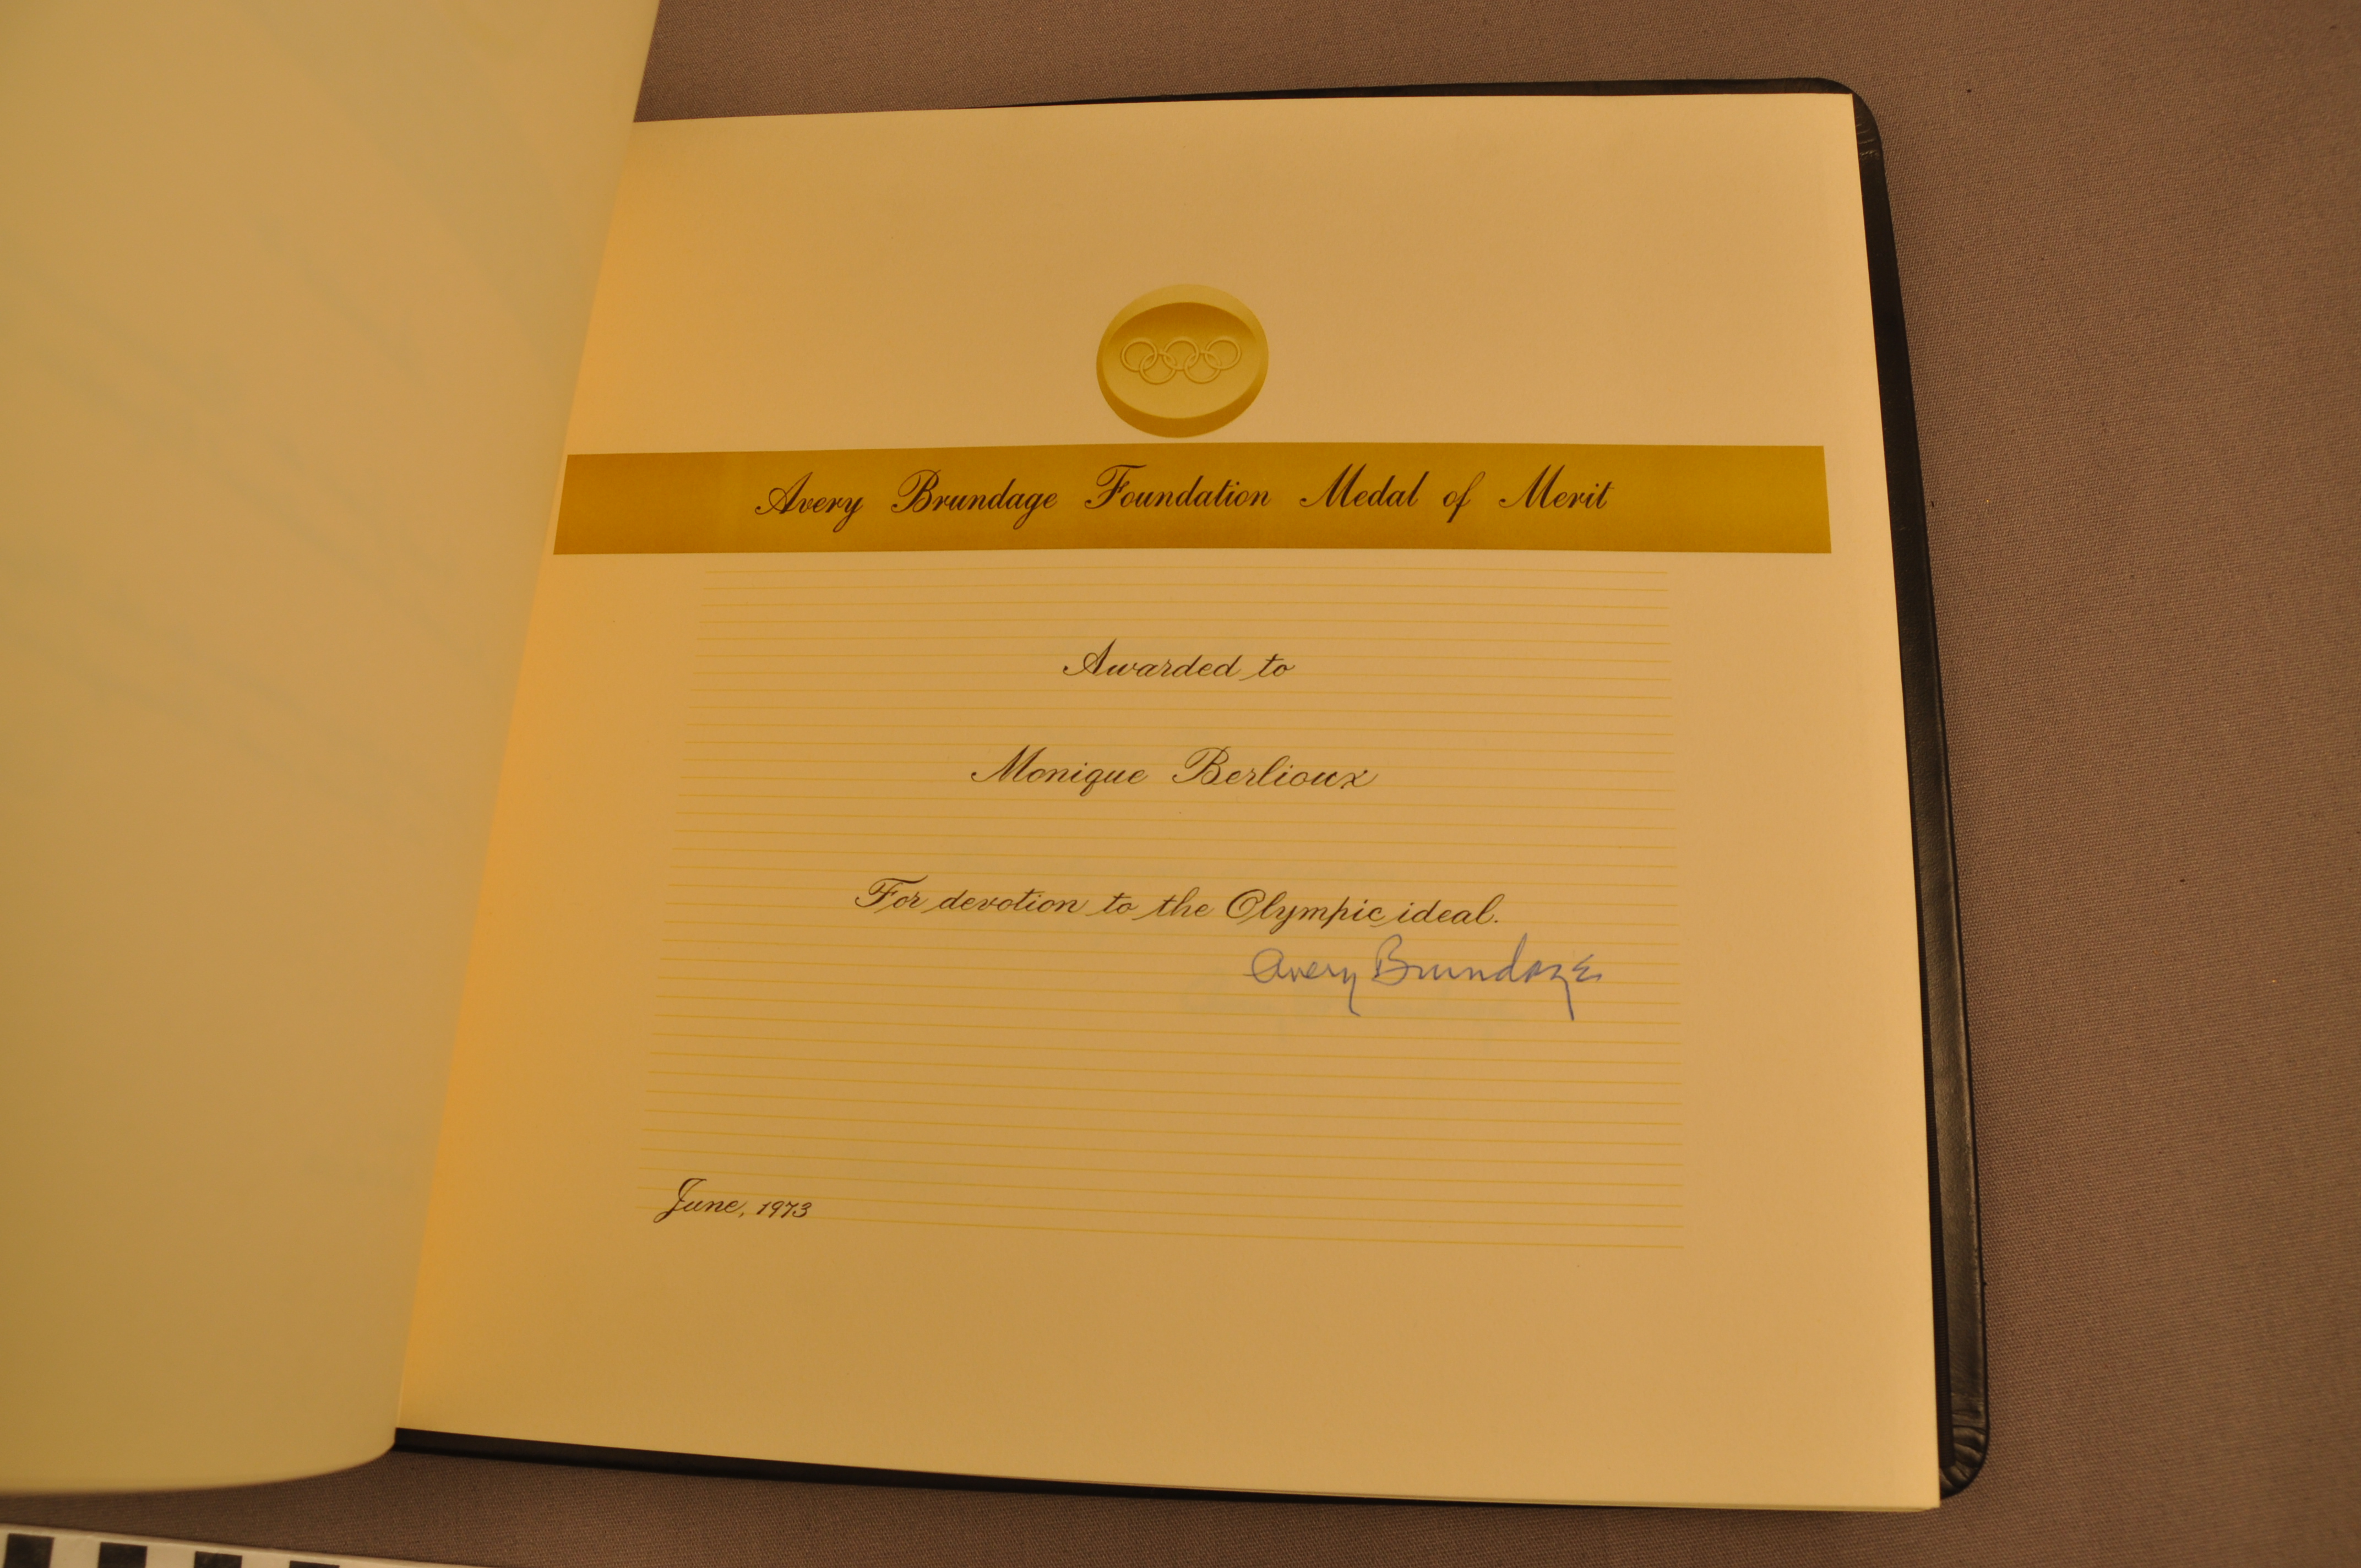 Avery Brundage Foundation Medal of Merit
Awarded to
Monique Berlioux
For devotion to the Olympic ideal.
Avery Brundage
June, 1973